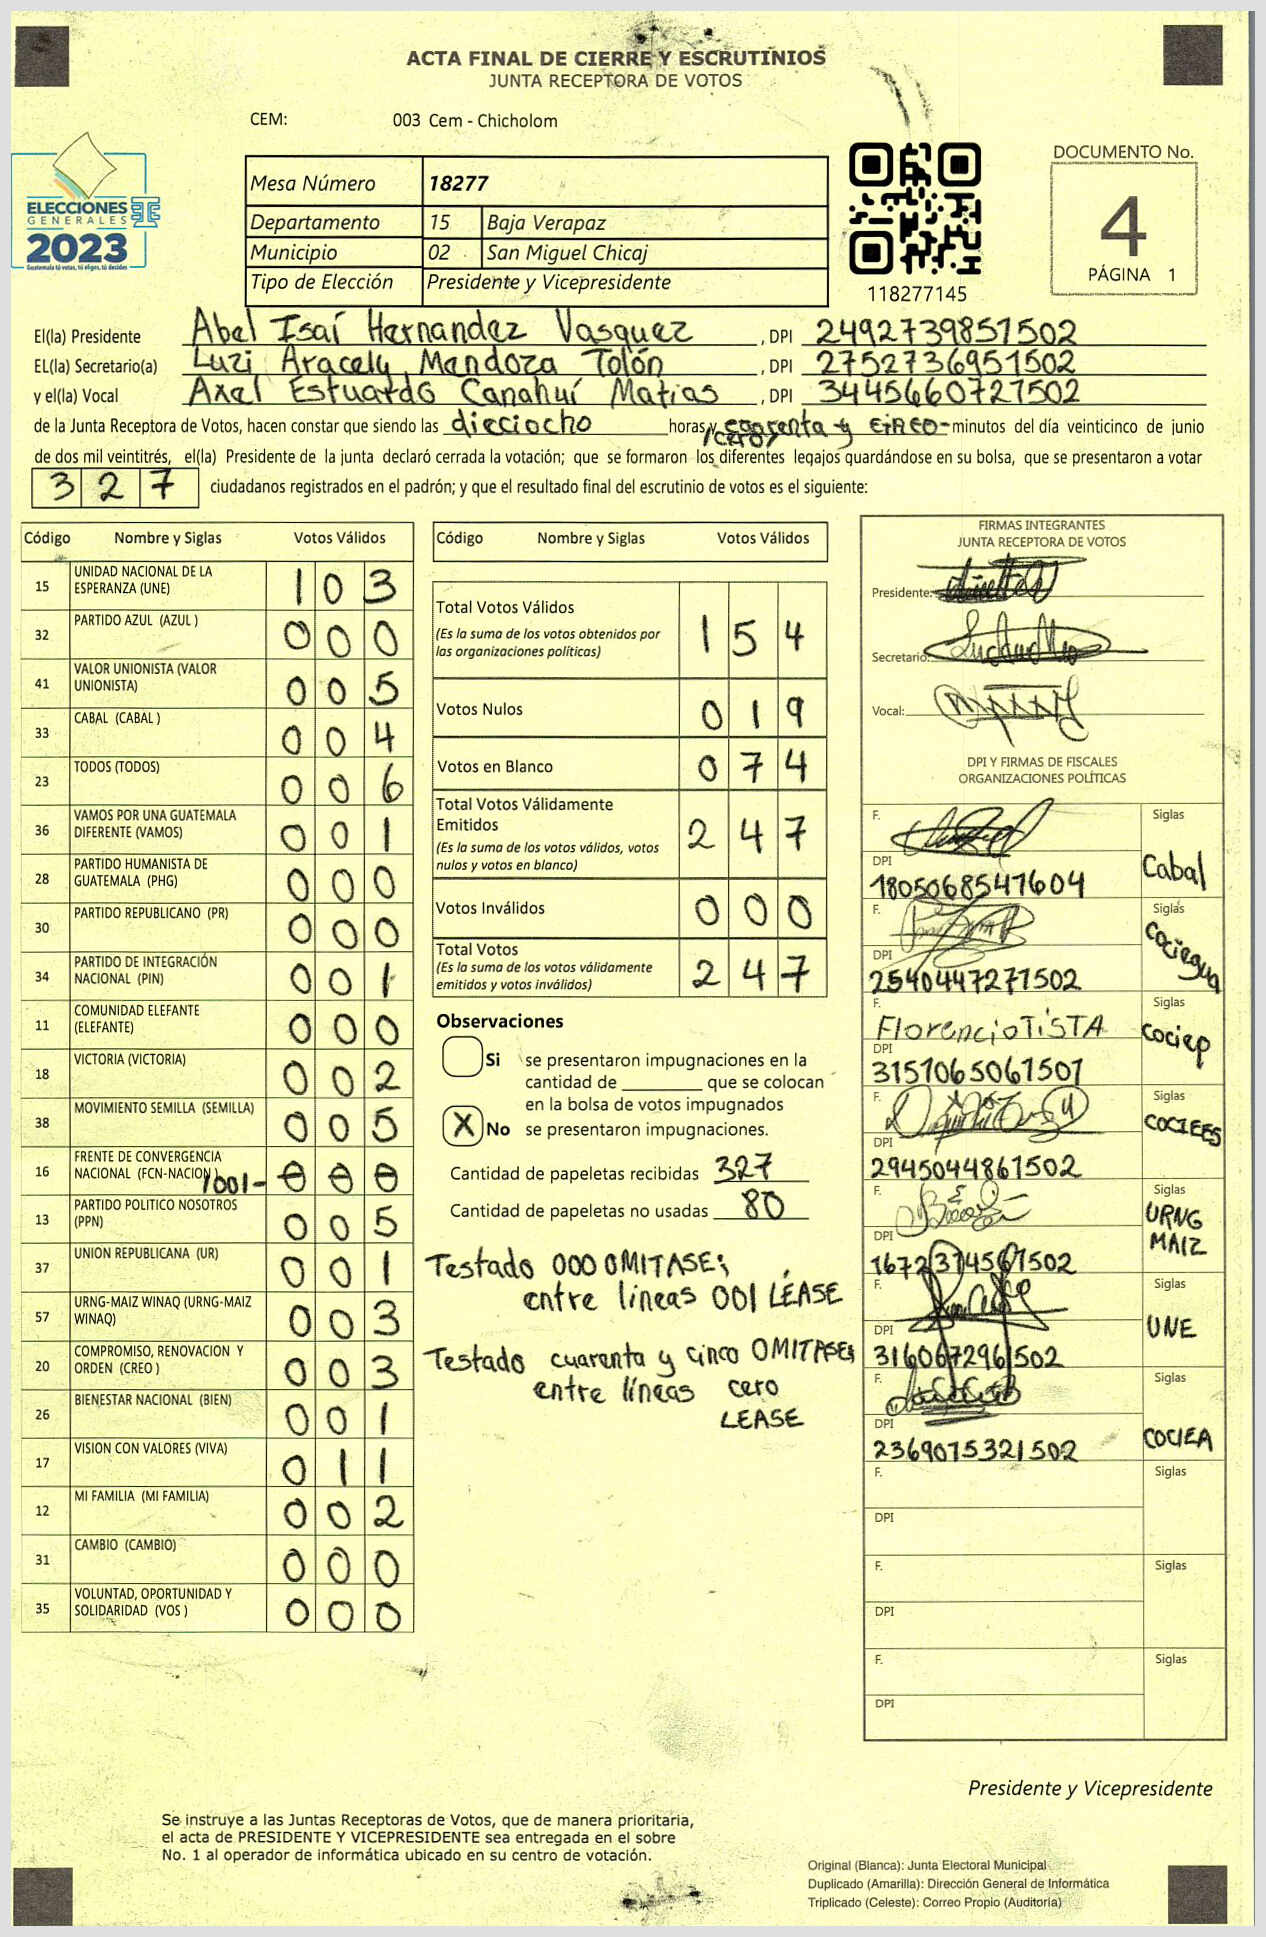 ACTA FINAL DE CIERRE Y ESCRUTINIOS
JUNTA RECEPTORA DE VOTOS
CEM: 003 Cem - Chicholom
ELECCIONES
GENERALES
2023
Guatemala tú votas, tú eliges, tú decides
Mesa Número 18277
Departamento 15 Baja Verapaz
Municipio 02 San Miguel Chicaj
Tipo de Elección Presidente y Vicepresidente
118277145
DOCUMENTO No.
4
PÁGINA 1
El(la) Presidente Abel Isaí Hernandez Vasquez, DPI 2492739851502
EL(la) Secretario(a) Luzi Aracely Mendoza Tolón, DPI 2752736951502
y el(la) Vocal Axel Estuardo Canahuí Matias, DPI 3445660721502
de la Junta Receptora de Votos, hacen constar que siendo las dieciocho horas y cuarenta y cinco minutos del día veinticinco de junio
/cero/
de dos mil veintitrés, el(la) Presidente de la junta declaró cerrada la votación; que se formaron los diferentes legajos guardándose en su bolsa, que se presentaron a votar
327 ciudadanos registrados en el padrón; y que el resultado final del escrutinio de votos es el siguiente:
Código Nombre y Siglas Votos Válidos
15 UNIDAD NACIONAL DE LA ESPERANZA (UNE) 103
32 PARTIDO AZUL (AZUL ) 000
41 VALOR UNIONISTA (VALOR UNIONISTA) 005
33 CABAL (CABAL ) 004
23 TODOS (TODOS) 006
36 VAMOS POR UNA GUATEMALA DIFERENTE (VAMOS) 001
28 PARTIDO HUMANISTA DE GUATEMALA (PHG) 000
30 PARTIDO REPUBLICANO (PR) 000
34 PARTIDO DE INTEGRACIÓN NACIONAL (PIN) 001
11 COMUNIDAD ELEFANTE (ELEFANTE) 000
18 VICTORIA (VICTORIA) 002
38 MOVIMIENTO SEMILLA (SEMILLA) 005
16 FRENTE DE CONVERGENCIA NACIONAL (FCN-NACION ) /001- 000
13 PARTIDO POLITICO NOSOTROS (PPN) 005
37 UNION REPUBLICANA (UR) 001
57 URNG-MAIZ WINAQ (URNG-MAIZ WINAQ) 003
20 COMPROMISO, RENOVACION Y ORDEN (CREO ) 003
26 BIENESTAR NACIONAL (BIEN) 001
17 VISION CON VALORES (VIVA) 011
12 MI FAMILIA (MI FAMILIA) 002
31 CAMBIO (CAMBIO) 000
35 VOLUNTAD, OPORTUNIDAD Y SOLIDARIDAD (VOS ) 000
Código Nombre y Siglas Votos Válidos
Total Votos Válidos 154
(Es la suma de los votos obtenidos por
las organizaciones políticas)
Votos Nulos 019
Votos en Blanco 074
Total Votos Válidamente
Emitidos 247
(Es la suma de los votos válidos, votos
nulos y votos en blanco)
Votos Inválidos 000
Total Votos 247
(Es la suma de los votos válidamente
emitidos y votos inválidos)
Observaciones
Si se presentaron impugnaciones en la
cantidad de ________ que se colocan
en la bolsa de votos impugnados
X No se presentaron impugnaciones.
Cantidad de papeletas recibidas 327
Cantidad de papeletas no usadas 80
Testado 000 OMITASE;
entre líneas 001 LEASE
Testado cuarenta y cinco OMITASE;
entre líneas cero
LEASE
FIRMAS INTEGRANTES
JUNTA RECEPTORA DE VOTOS
Presidente:
Secretario:
Vocal:
DPI Y FIRMAS DE FISCALES
ORGANIZACIONES POLÍTICAS
F. Siglas
DPI Cabal
1805068547604
F. Siglas
DPI Cociegua
2540447271502
F. Siglas
FlorencioTiSTA
DPI Cociep
3157065061507
F. Siglas
DPI COCIEES
2945044861502
F. Siglas
URNG
DPI MAIZ
1672374561502
F. Siglas
DPI UNE
3160672961502
F. Siglas
DPI COCIEA
2369075321502
F. Siglas
DPI
F. Siglas
DPI
F. Siglas
DPI
Presidente y Vicepresidente
Se instruye a las Juntas Receptoras de Votos, que de manera prioritaria,
el acta de PRESIDENTE Y VICEPRESIDENTE sea entregada en el sobre
No. 1 al operador de informática ubicado en su centro de votación.
Original (Blanca): Junta Electoral Municipal
Duplicado (Amarilla): Dirección General de Informática
Triplicado (Celeste): Correo Propio (Auditoría)